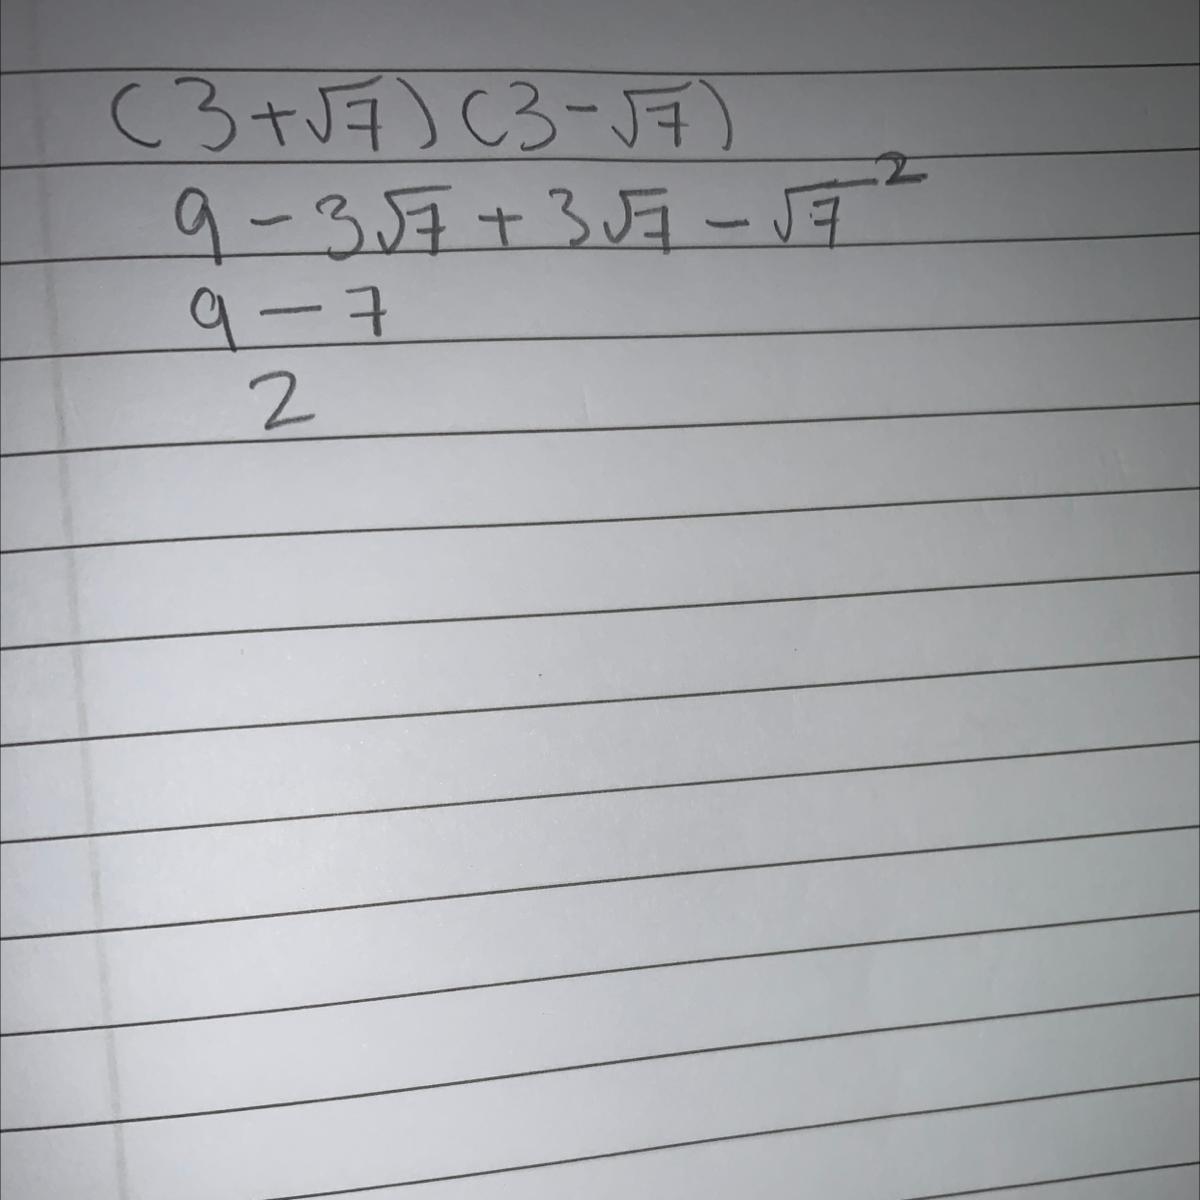 (3+√7)(3-√7)
9-3√7+3√7-√7²
9-7
2